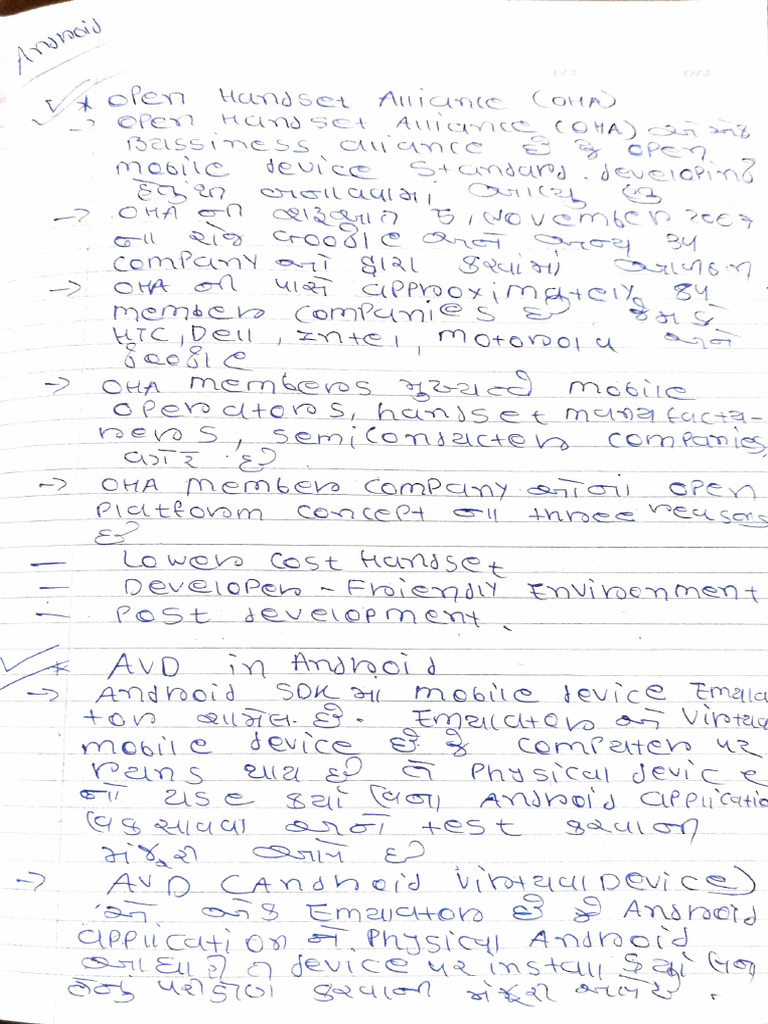 Android
* Open Handset Alliance (OHA)
→ Open Handset Alliance (OHA) એ એક
Bussiness alliance છે જે open
mobile device standard developing
હેતુથી બનાવવામાં આવ્યુ છે
→ OHA ની શરૂઆત 5, November 2007
ના રોજ Google અને અન્ય 34
company ઓ દ્વારા કરવામાં આવી
→ OHA ની પાસે approximately 84
members companies છે જેમ કે
HTC, Dell, Intel, Motorola અને
Google
→ OHA members મુખ્યત્વે mobile
operators, handset manufactu-
rers, semiconductor companies,
વગેરે છે.
→ OHA member company ઓના open
platform concept ના three reasons
છે
— Lower cost Handset
— Developer - Friendly Environment
— Post development.
* AVD in Android
→ Android SDK મા mobile device Emula
tor શામેલ છે. Emulator એ virtual
mobile device છે જે computer પર
run થાય છે તે physical device
નો use કર્યા વિના Android applicatio
વિકસાવવા અને test કરવાની
મંજૂરી આપે છે
→ AVD (Android Virtual Device)
એ એક Emulator છે જે Android
application ને physical Android
આધારીત device પર install કર્યા વિના
તેનુ પરીક્ષણ કરવાની મંજૂરી આપે છે.